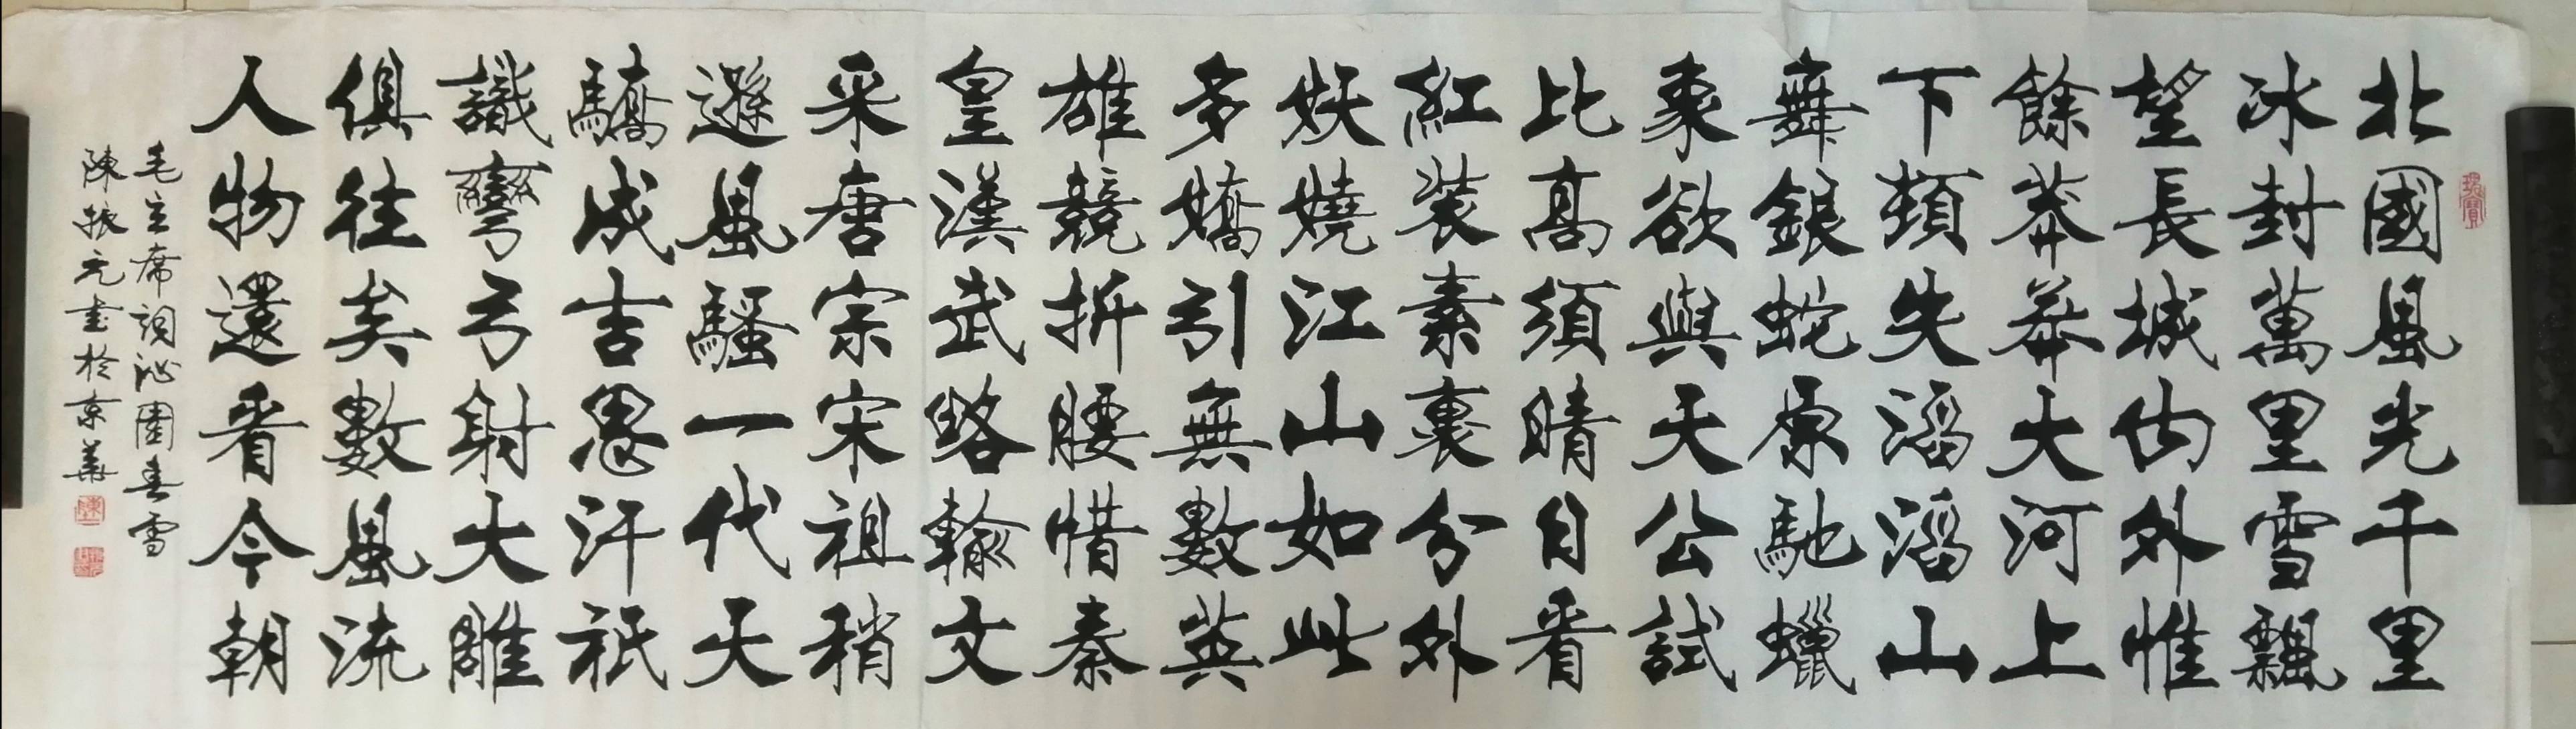 瑰寶
北國風光千里
冰封萬里雪飄
望長城內外惟
餘莽莽大河上
下頓失滔滔山
舞銀蛇原馳蠟
象欲與天公試
比高須晴日看
紅裝素裹分外
妖嬈江山如此
多嬌引無數英
雄競折腰惜秦
皇漢武略輸文
采唐宗宋祖稍
遜風騷一代天
驕成吉思汗祇
識彎弓射大雕
俱往矣數風流
人物還看今朝
毛主席詞沁園春雪
陳振元書於京華